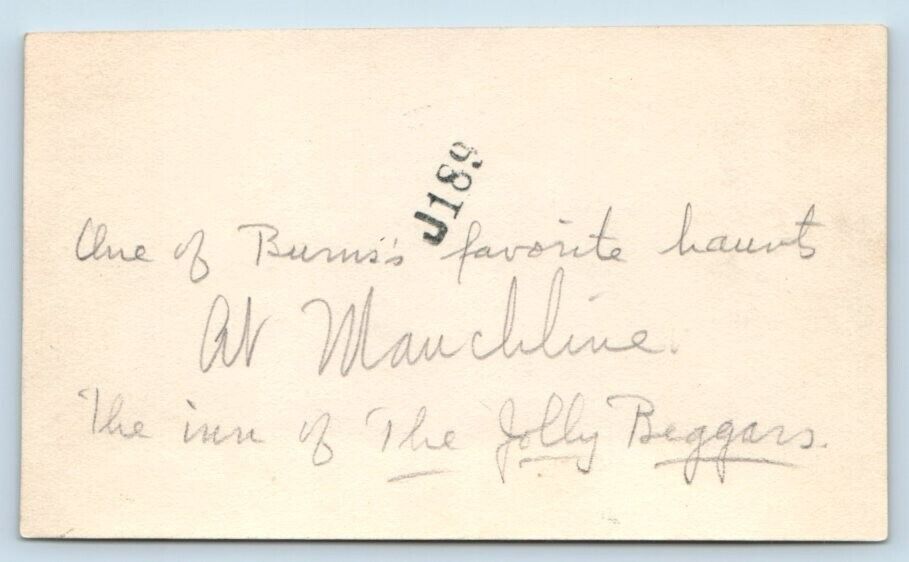 J189
One of Burns's favorite haunts
At Mauchline.
The inn of The Jolly Beggars.